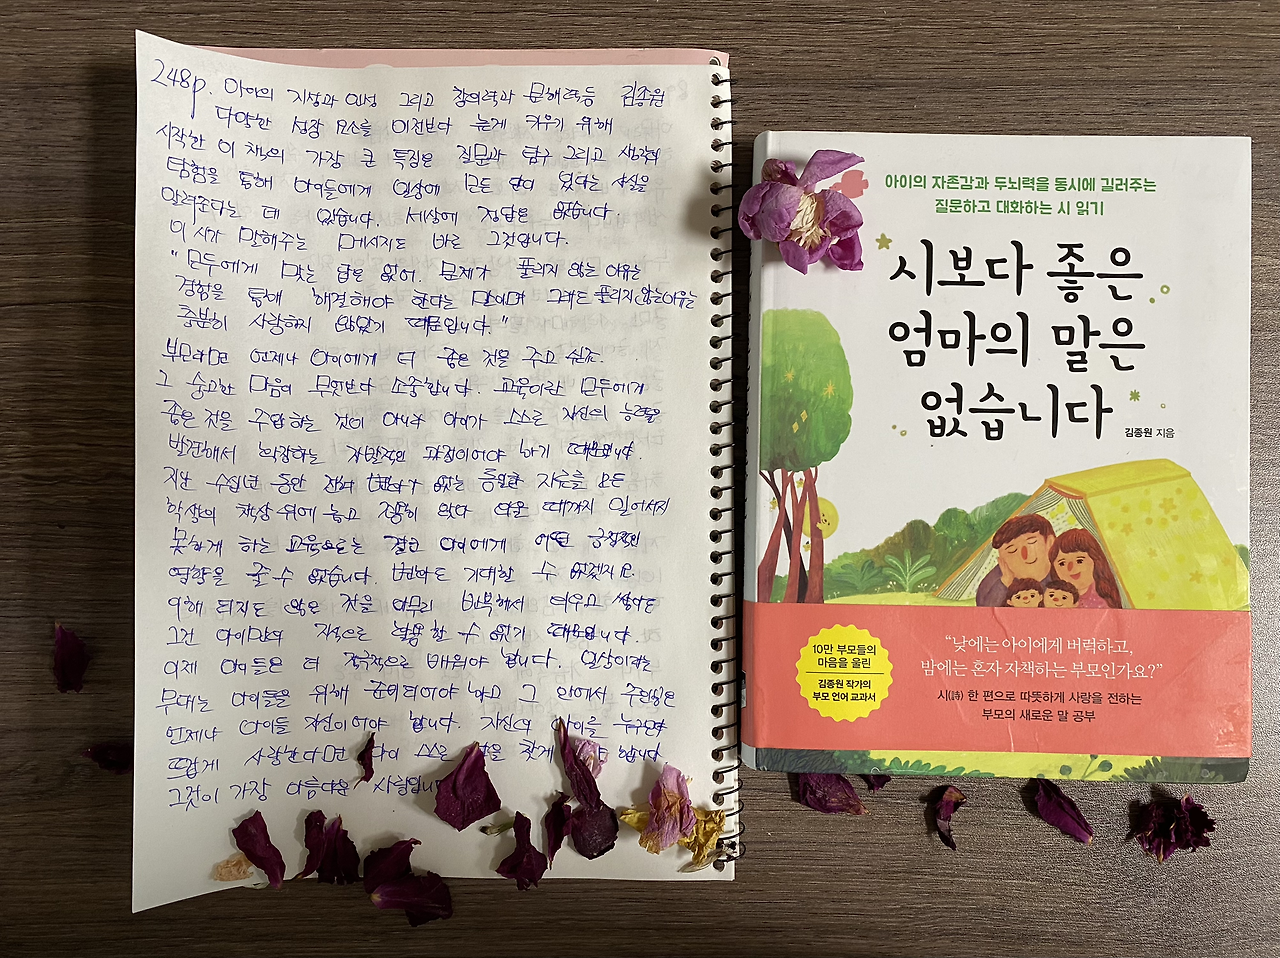 248p. 아이의 지성과 인성 그리고 창의력과 문해력등 김종원
다양한 성장 요소를 이전보다 높게 키우기 위해
시작한 이 책의 가장 큰 특징은 질문과 탐구 그리고 생각의
탐험을 통해 아이들에게 일상에 모든 답이 있다는 사실을
알려준다는 데 있습니다. 세상에 정답은 없습니다.
이 시가 말해주는 메시지도 바로 그것입니다.
"모두에게 맞는 답은 없어. 문제가 풀리지 않는 이유는
경험을 통해 해결해야 한다는 말이며 그래도 풀리지 않는 이유는
충분히 사랑하지 않았기 때문입니다."
부모라면 언제나 아이에게 더 좋은 것을 주고 싶죠.
그 숭고한 마음이 무엇보다 소중합니다. 교육이란 모두에게
좋은 것을 주입하는 것이 아니라 아이가 스스로 자신의 능력을
발견해서 확장하는 자발적인 과정이어야 하기 때문입니다.
지난 수십년 동안 전혀 변화가 없는 동일한 자료를 모든
학생의 책상 위에 놓고 정답이 맞다 외울 때까지 일어서지
못하게 하는 교육으로는 결코 아이에게 어떤 긍정적인
영향을 줄 수 없습니다. 변화도 기대할 수 없겠지요.
이해 되지도 않은 것을 아무리 반복해서 외우고 쌓아도
그건 아이만의 지식으로 활용할 수 없기 때문입니다.
이제 아이들은 더 적극적으로 배워야 합니다. 일상이라는
무대는 아이들을 위해 준비되어야 하고 그 안에서 주인공은
언제나 아이들 자신이어야 합니다. 자신의 아이를 누구보다
뜨겁게 사랑한다면 아이 스스로 답을 찾게 해야 합니다.
그것이 가장 아름다운 사랑입니다
아이의 자존감과 두뇌력을 동시에 길러주는
질문하고 대화하는 시 읽기
시보다 좋은
엄마의 말은
없습니다
김종원 지음
"낮에는 아이에게 버럭하고,
밤에는 혼자 자책하는 부모인가요?"
시(詩) 한 편으로 따뜻하게 사랑을 전하는
부모의 새로운 말 공부
10만 부모들의
마음을 울린
김종원 작가의
부모 언어 교과서